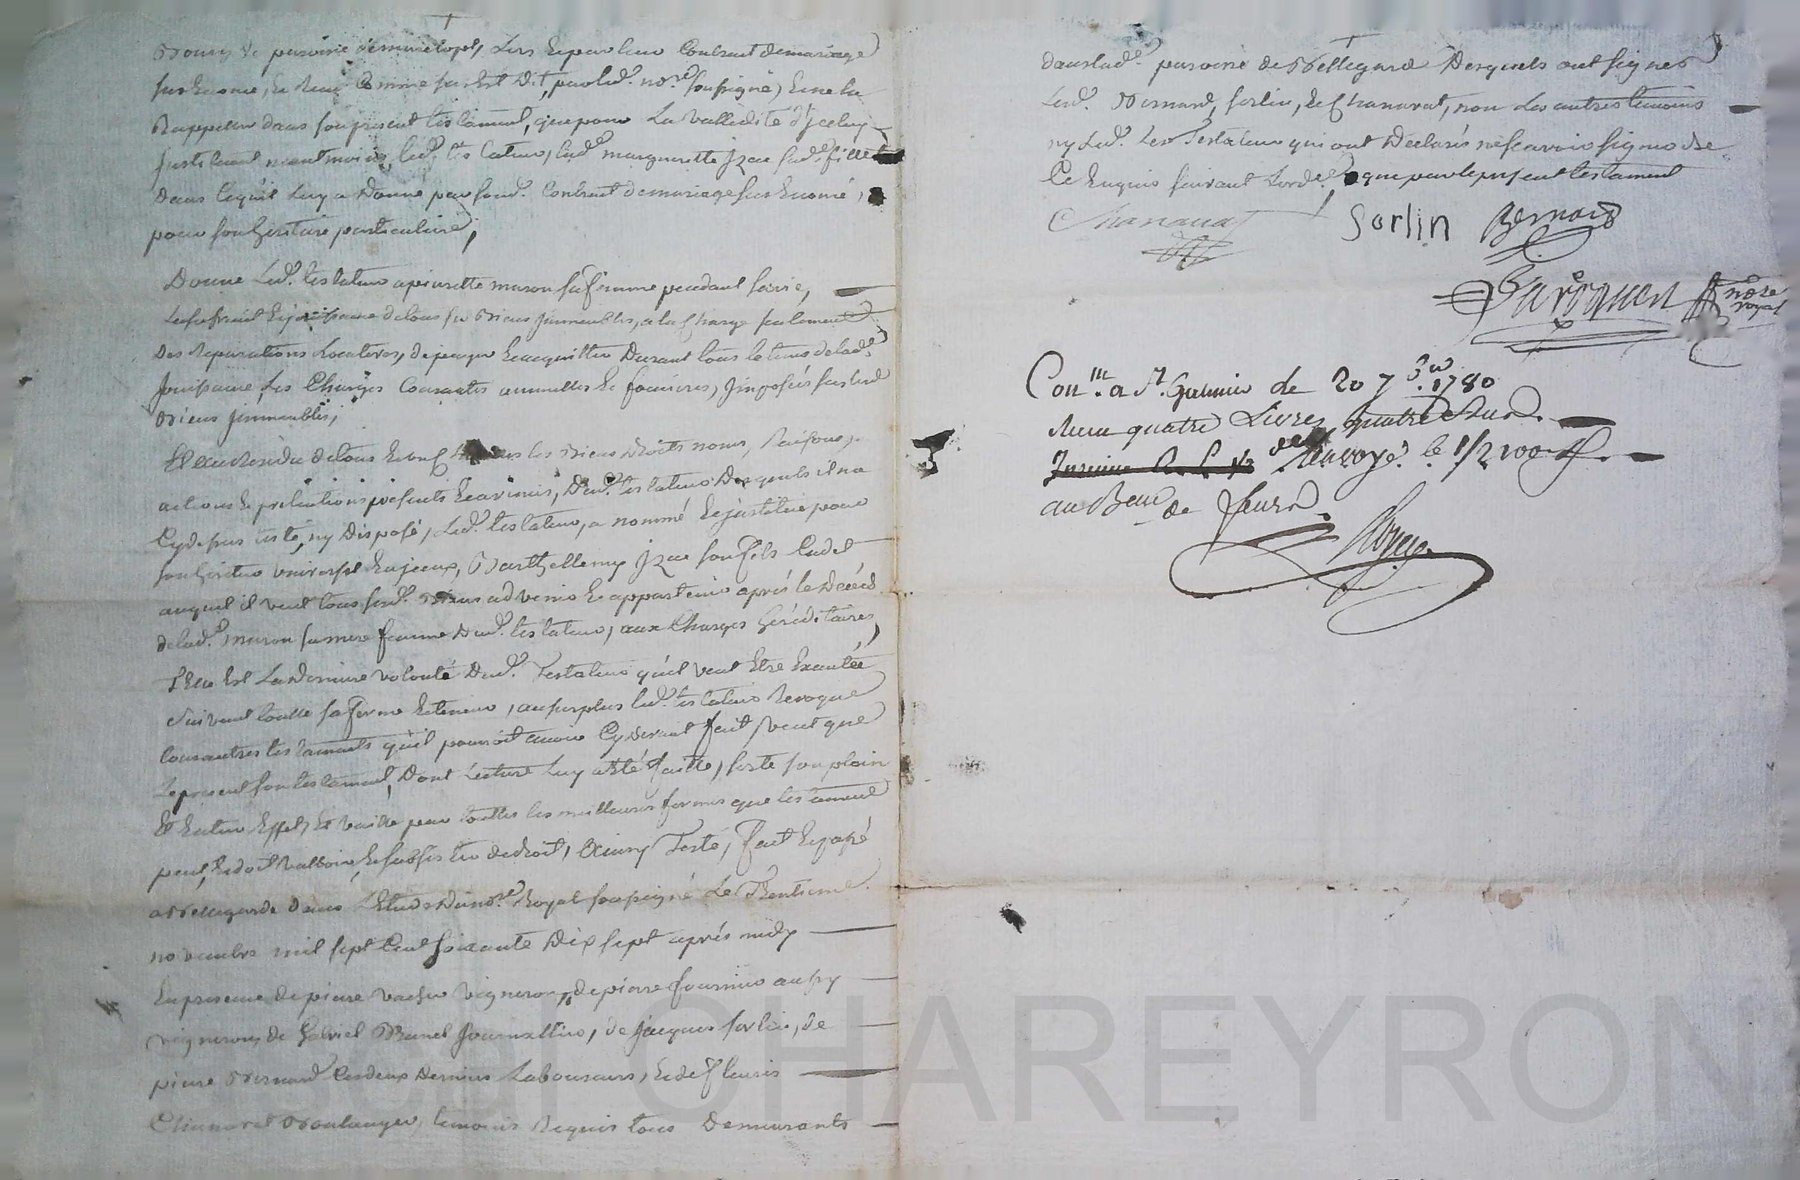 de paroisse Lors Et par leur Contract de mariage
sus Enoncé, Et Receu Comme sus Est Dit, par led. no.re soussigné, Et ne la
Rappeller dans son présent testament, que pour La Vallidité d'Iceluy
Instituant neantmoins led. testateur, lad. margueritte Izac sad. fille
Dans Ce qu'il Luy a Donné par sond. Contract de mariage sus Enoncé,
pour son héritiere particuliere,
Donne Led. testateur a pierrette muron sa femme pendant sa vie,
Lusufruit Et jouissance de tous ses Biens Immeubles, a la Charge seulement
Des Reparations Locatives, de payer Et acquitter Durant tous le tems de lad.
Jouissance Les Charges Courantes annuelles Et foncieres, Imposés sur lesd
Biens Immeubles,
Et au Residu de tous Et les Biens Droits noms, Raisons,
actions Et prétentions présents Et avenir, Dud. testateur Desquels il na
Cy dessus testé, ny Disposé, Led. testateur, a nommé Et jnstitué pour
son héritier universel Barthellemy Izac son fils Cadet
auquel il veut tous sesd. Biens advenir Et appartenir après le Décéd
de lad. muron sa mere femme Dud. testateur, aux Charges héréditaires,
Telle Est La Derniere volonté Dud. Testateur qu'il veut Etre Exécutée
suivant toutte sa forme Et teneur, au surplus led. testateur Revoque
tous autres testaments qu'il pourroit avoir Cy devant fait, veut que
Le présent son testament, Dont Lecture Luy a Eté faitte, sorte son plain
Et Entier Effet, Et vaille par touttes les meilleures formes que testament
peut, Et doit valloir, Et subsister de droit, Ainsy Testé, fait Et passé
a Bellegarde dans L'Etude Du no.re Royal soussigné Le Trentieme
novembre mil sept Cent soixante Dix sept après midy
En présence de pierre vacher vigneron, de pierre fournier aussy
vigneron, de Gabriel Brunel Journallier, de jacques sorlin, de
pierre Bernard Ces deux Derniers Laboureurs, Et de fleuris
Chanavat Boulanger, temoins Requis tous Demeurants
dans lad. paroisse de Bellegarde Desquels ont signés
Lesd. Bernard, sorlin, Et Chanavat, non Les autres temoins
ny Led. Testateur qui ont Déclarés ne scavoir signer de
Ce Enquis suivant Lord.
Chanavat Sorlin Bernard
nore
royal
Con.lle a St. Galmier le 20 7bre 1780
Receu quatre Livres
Renvoyé le 1/2
au Beau de feurs.
Pascal CHAREYRON